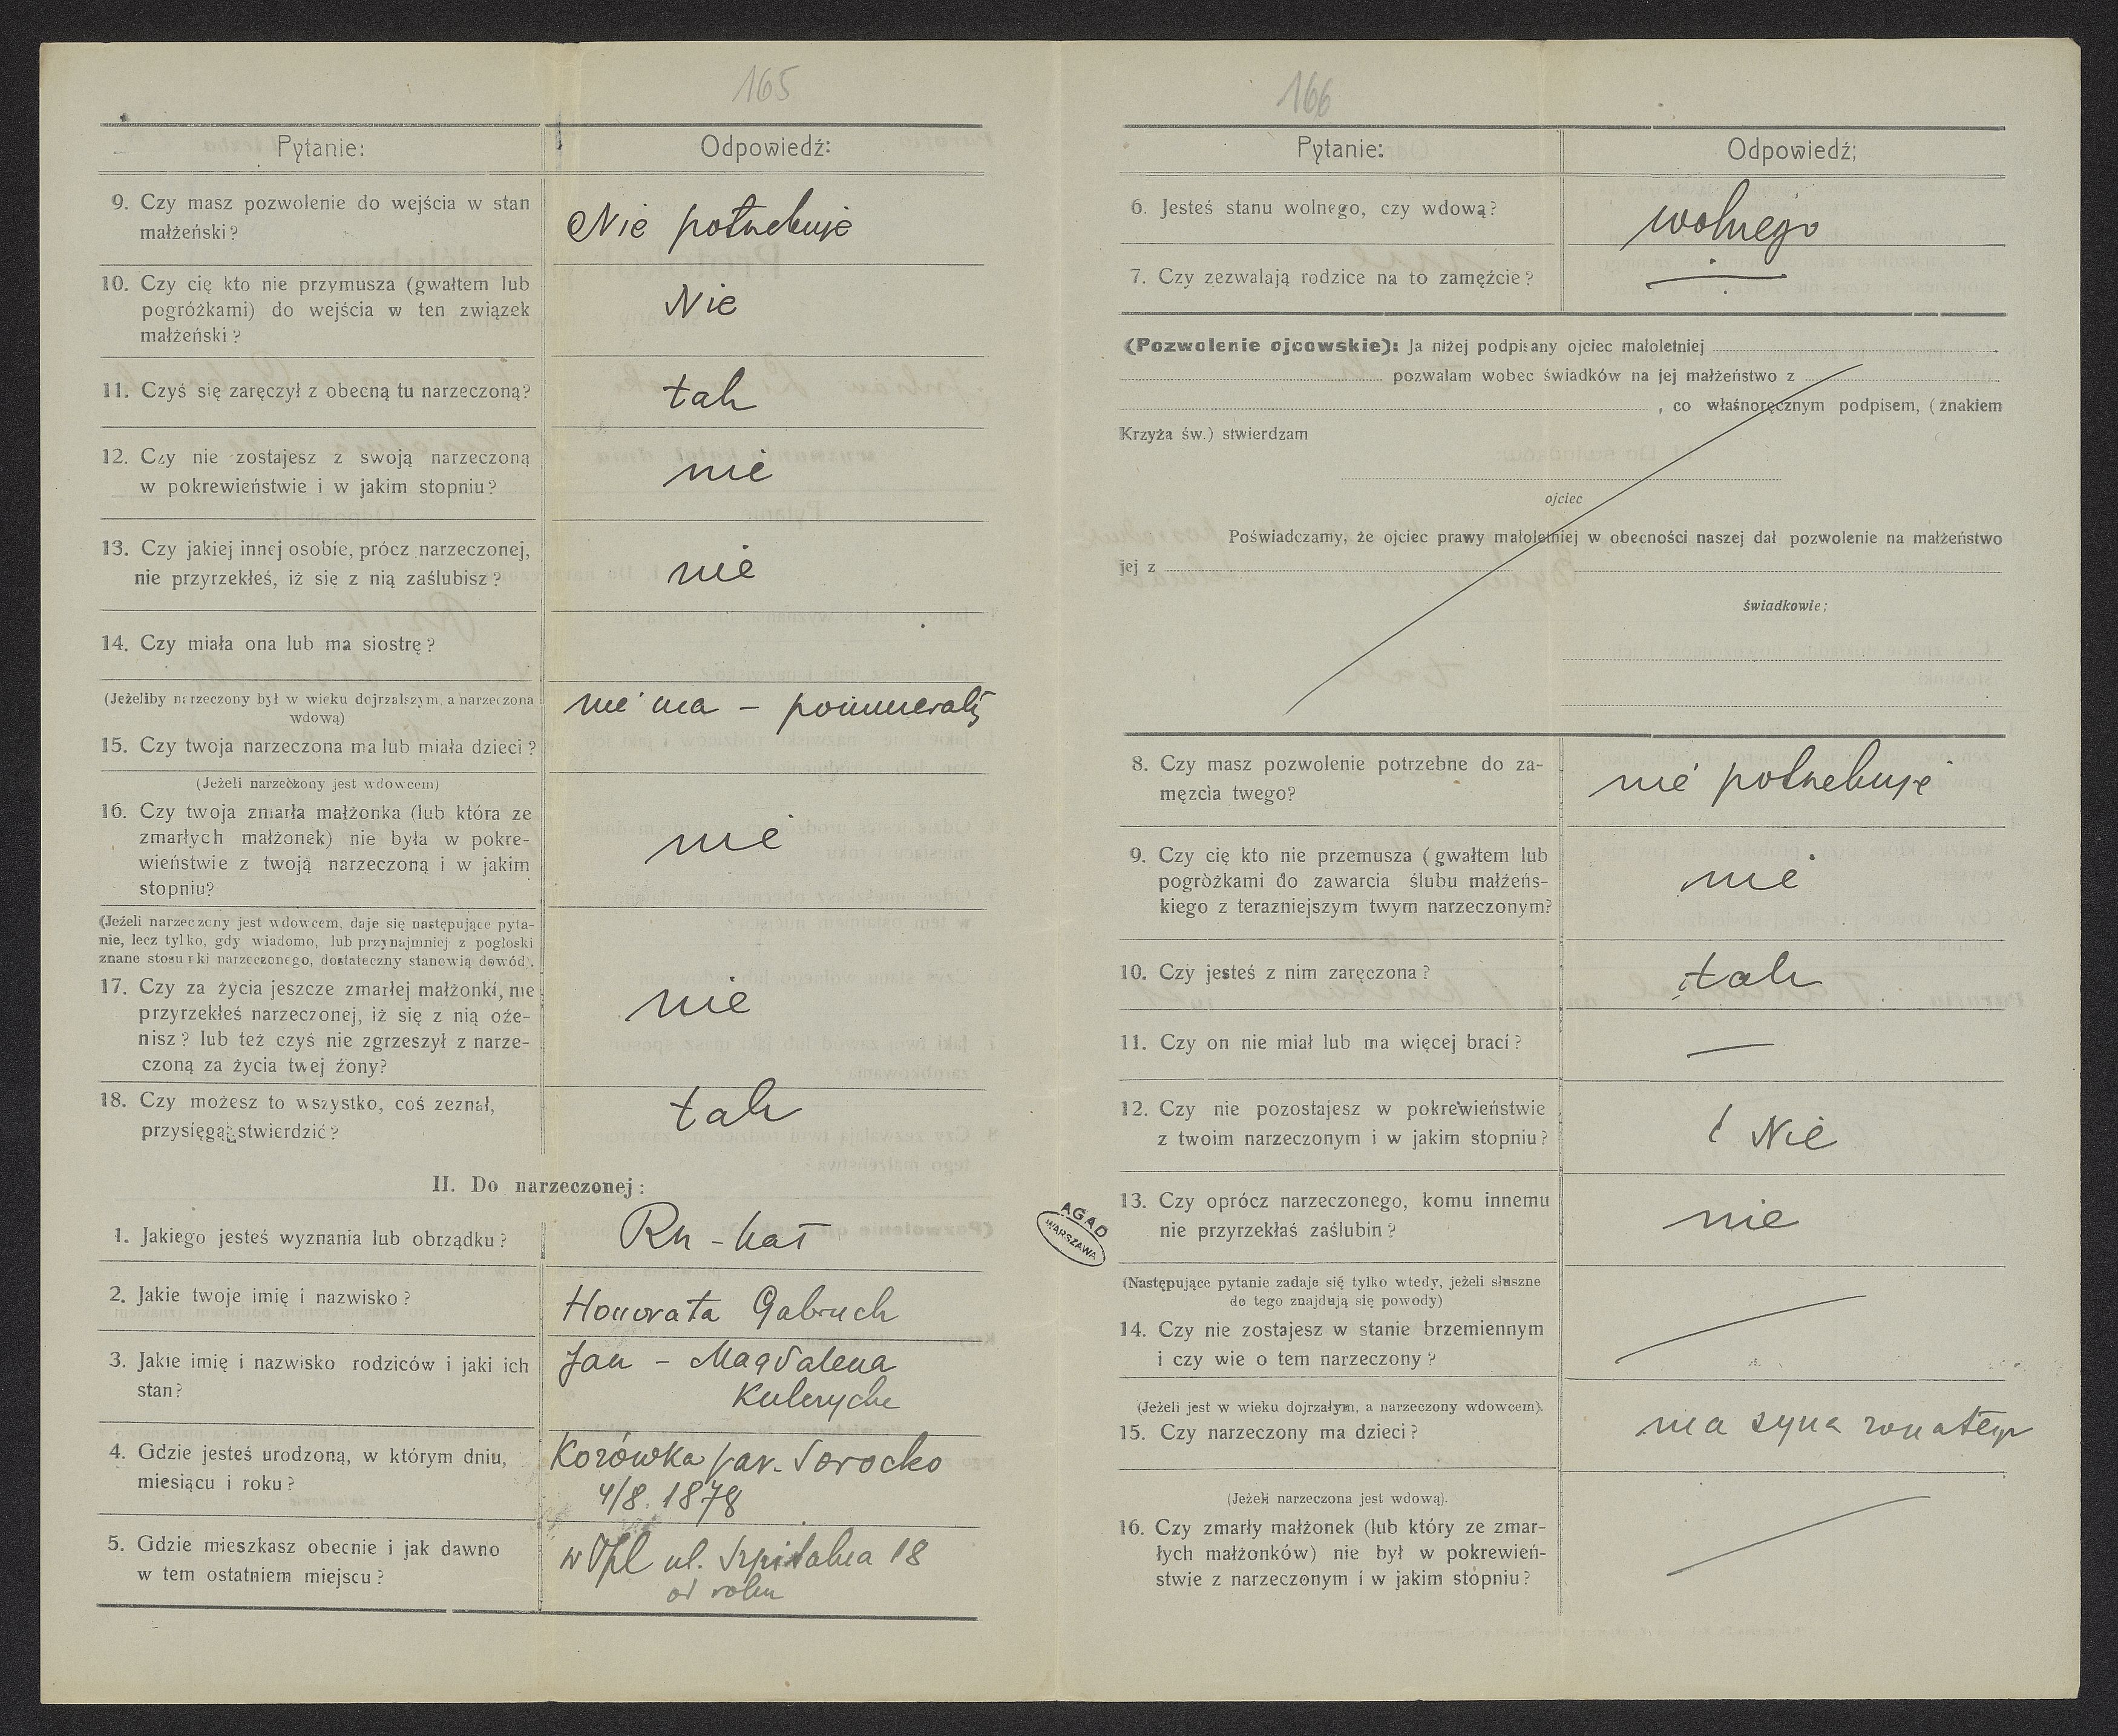 165
Pytanie:
Odpowiedź:
9. Czy masz pozwolenie do wejścia w stan
małżeński?
Nie potrzebuje
10. Czy cię kto nie przymusza (gwałtem lub
pogróżkami) do wejścia w ten związek
małżeński?
Nie
11. Czyś się zaręczył z obecną tu narzeczoną?
tak
12. Czy nie zostajesz z swoją narzeczoną
w pokrewieństwie i w jakim stopniu?
nie
13. Czy jakiej innej osobie, prócz narzeczonej,
nie przyrzekłeś, iż się z nią zaślubisz?
nie
14. Czy miała ona lub ma siostrę?
(Jeżeliby narzeczony był w wieku dojrzalszym, a narzeczona
wdową)
15. Czy twoja narzeczona ma lub miała dzieci?
nie ma –
(Jeżeli narzeczony jest wdowcem)
16. Czy twoja zmarła małżonka (lub która ze
zmarłych małżonek) nie była w pokre-
wieństwie z twoją narzeczoną i w jakim
stopniu?
nie
(Jeżeli narzeczony jest wdowcem, daje się następujące pyta-
nie, lecz tylko, gdy wiadomo, lub przynajmniej z pogłoski
znane stosunki narzeczonego, dostateczny stanowią dowód).
17. Czy za życia jeszcze zmarłej małżonki, nie
przyrzekłeś narzeczonej, iż się z nią oże-
nisz? lub też czyś nie zgrzeszył z narze-
czoną za życia twej żony?
nie
18. Czy możesz to wszystko, coś zeznał,
przysięgą stwierdzić?
tak
II. Do narzeczonej:
1. Jakiego jesteś wyznania lub obrządku?
Rz-kat
2. Jakie twoje imię i nazwisko?
Honorata Gabruch
3. Jakie imię i nazwisko rodziców i jaki ich
stan?
Jan – Magdalena
4. Gdzie jesteś urodzoną, w którym dniu,
miesiącu i roku?
Kozówka par. Sorocko
4/8. 1878
5. Gdzie mieszkasz obecnie i jak dawno
w tem ostatniem miejscu?
w Tpl ul. Szpitalna 18
od roku
166
Pytanie:
Odpowiedź;
6. Jesteś stanu wolnego, czy wdową?
wolnego
7. Czy zezwalają rodzice na to zamęźcie?
(Pozwolenie ojcowskie): Ja niżej podpisany ojciec małoletniej
pozwalam wobec świadków na jej małżeństwo z
, co własnoręcznym podpisem, (znakiem
Krzyża św.) stwierdzam
ojciec
Poświadczamy, że ojciec prawy małoletniej w obecności naszej dał pozwolenie na małżeństwo
jej z
świadkowie;
8. Czy masz pozwolenie potrzebne do za-
męzcia twego?
nie potrzebuje
9. Czy cię kto nie przemusza (gwałtem lub
pogróżkami do zawarcia ślubu małżeńs-
kiego z terazniejszym twym narzeczonym?
nie
10. Czy jesteś z nim zaręczona?
tak
11. Czy on nie miał lub ma więcej braci?
—
12. Czy nie pozostajesz w pokrewieństwie
z twoim narzeczonym i w jakim stopniu?
Nie
13. Czy oprócz narzeczonego, komu innemu
nie przyrzekłaś zaślubin?
nie
AGAD
WARSZAWA
(Następujące pytanie zadaje się tylko wtedy, jeżeli słuszne
do tego znajdują się powody)
14. Czy nie zostajesz w stanie brzemiennym
i czy wie o tem narzeczony?
(Jeżeli jest w wieku dojrzałym, a narzeczony wdowcem).
15. Czy narzeczony ma dzieci?
ma syna żonatego
(Jeżeli narzeczona jest wdową).
16. Czy zmarły małżonek (lub który ze zmar-
łych małżonków) nie był w pokrewień-
stwie z narzeczonym i w jakim stópniu?